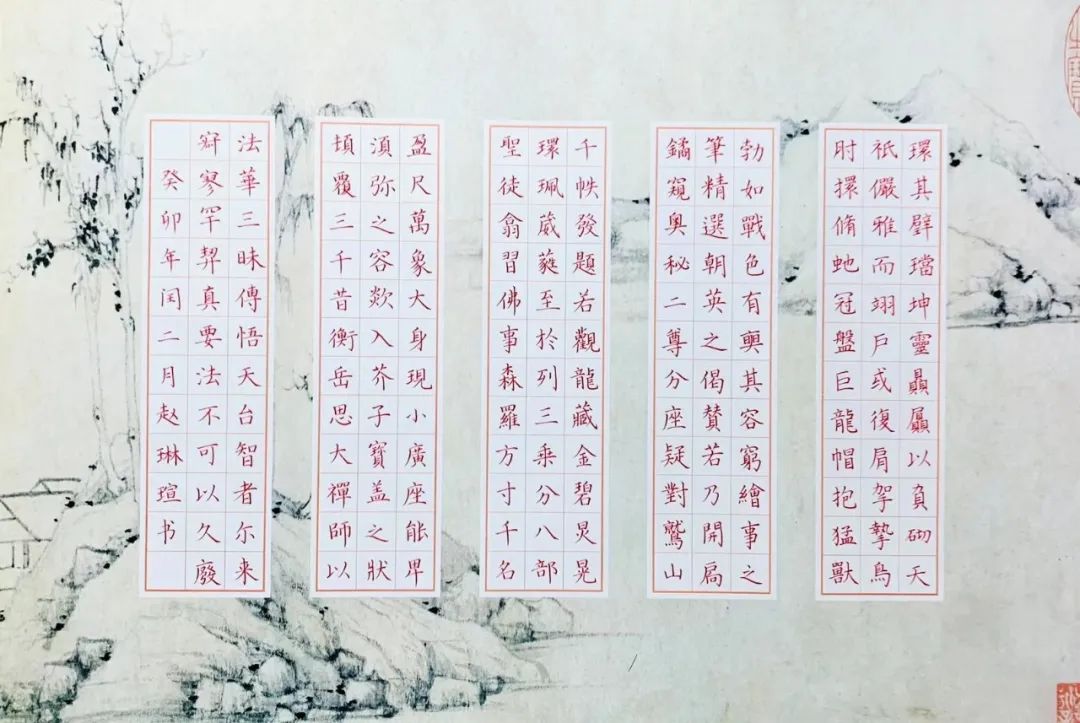 環其壁璫坤靈贔屭以負砌天
祇儼雅而翊戶或復肩拏摯鳥
肘擐脩虵冠盤巨龍帽抱猛獸
勃如戰色有奭其容窮繪事之
筆精選朝英之偈贊若乃開扃
鐍窺奧秘二尊分座疑對鷲山
千帙發題若觀龍藏金碧炅晃
環珮葳蕤至於列三乘分八部
聖徒翕習佛事森羅方寸千名
盈尺萬象大身現小廣座能卑
須弥之容欻入芥子寶盖之狀
頓覆三千昔衡岳思大禪師以
法華三昧傳悟天台智者尓来
寂寥罕契真要法不可以久廢
癸卯年闰二月赵琳瑄书